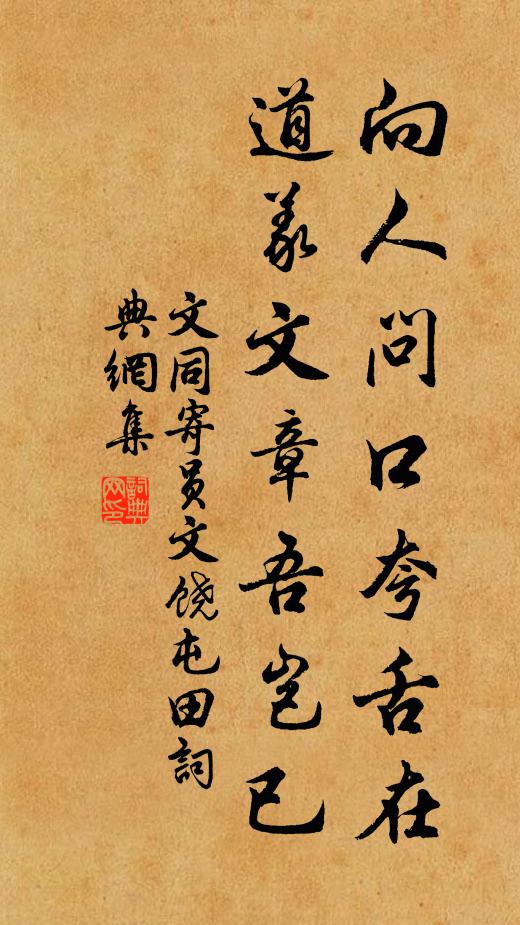 向人问口夸舌在
道义文章吾岂已
文同寄员文饶屯田詞
典網集
詞典網印